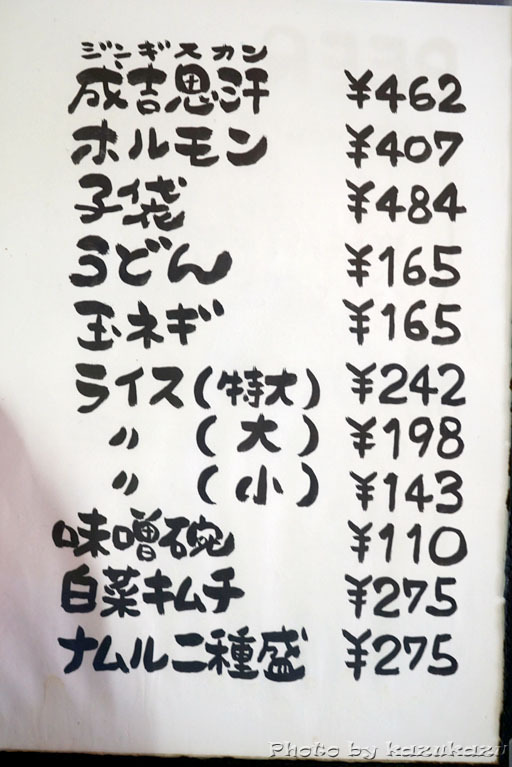 ジンギスカン
成吉思汗 ¥462
ホルモン ¥407
子袋 ¥484
うどん ¥165
玉ネギ ¥165
ライス(特大) ¥242
〃 (大) ¥198
〃 (小) ¥143
味噌碗 ¥110
白菜キムチ ¥275
ナムル二種盛 ¥275
Photo by kazukazu